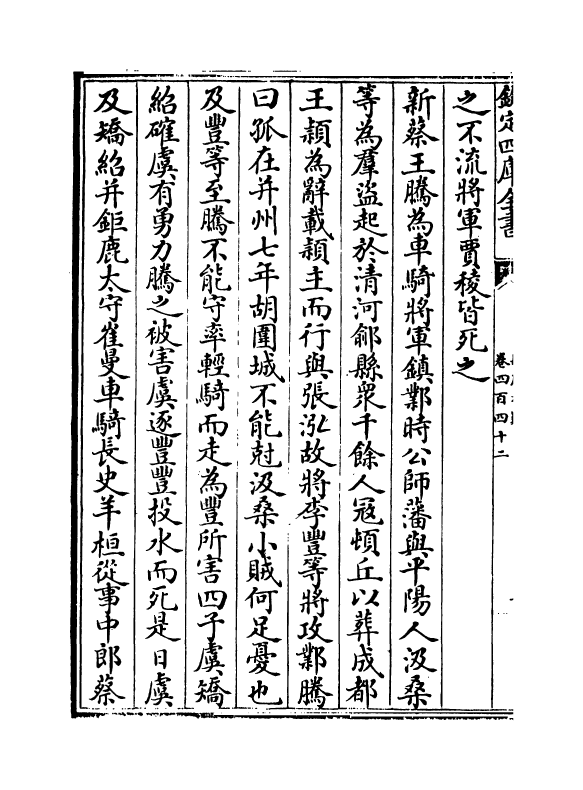 欽定四庫全書
卷四百四十二
之不流將軍賈稜皆死之
新蔡王騰為車騎將軍鎮鄴時公師藩與平陽人汲桑
等為羣盜起於清河鄃縣衆千餘人寇頓丘以葬成都
王頴為辭載頴主而行與張泓故將李豐等將攻鄴騰
曰孤在并州七年胡圍城不能尅汲桑小賊何足憂也
及豐等至騰不能守率輕騎而走為豐所害四子虞矯
紹確虞有勇力騰之被害虞逐豐豐投水而死是日虞
及矯紹并鉅鹿太守崔曼車騎長史羊桓從事中郎蔡